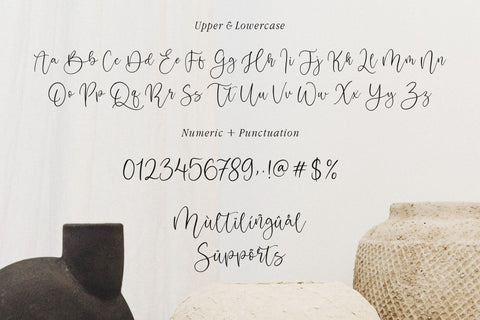 Upper & Lowercase
Aa Bb Cc Dd Ee Ff Gg Hh Ii Jj Kk Ll Mm Nn
Oo Pp Qq Rr Ss Tt Uu Vv Ww Xx Yy Zz
Numeric + Punctuation
0123456789,.!@#$%
Mùltilingûâl
Sùppôrts